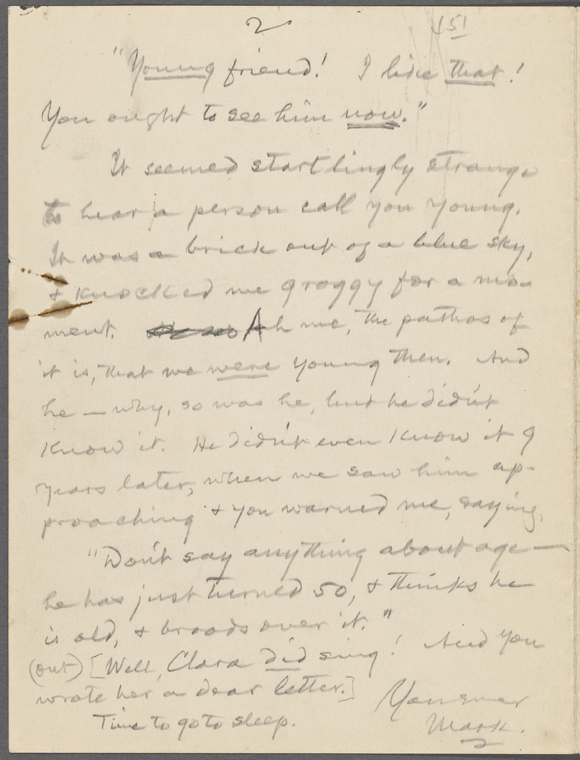 2 451
"Young friend! I like that!
You ought to see him now."
It seemed startlingly strange
to hear a person call you young.
It was a brick out of a blue sky,
& knocked me groggy for a mo-
ment. Ah me, the pathos of
it is, that we were young then. And
he — why, so was he, but he didn't
know it. He didn't even know it 9
years later, when we saw him ap-
proaching & you warned me, saying,
"Don't say anything about age —
he has just turned 50, & thinks he
is old, & broods over it."
(out) [Well, Clara did sing! And you
wrote her a dear letter.]
Time to go to sleep. Yours ever
Mark.